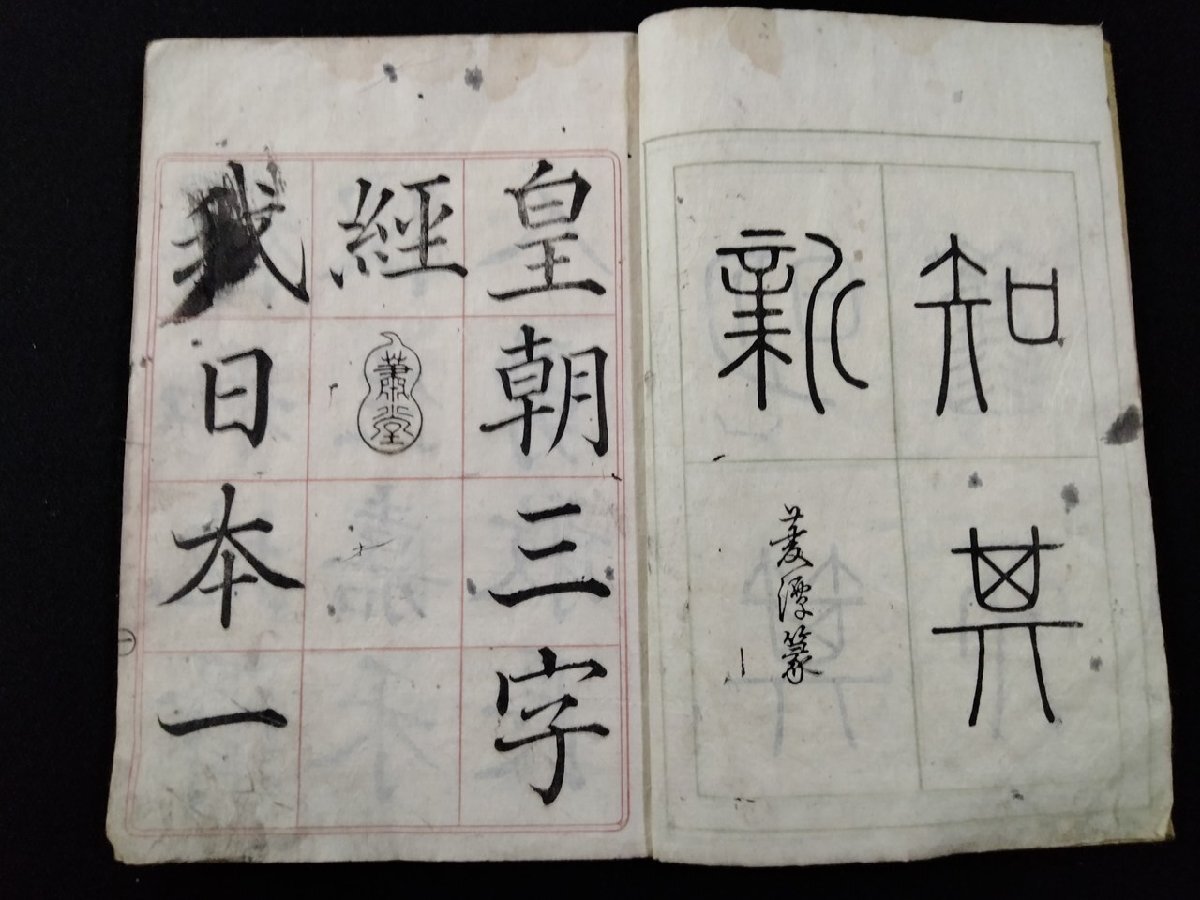 知其
新
菱潭篆
皇朝三字
經
我日本一
一